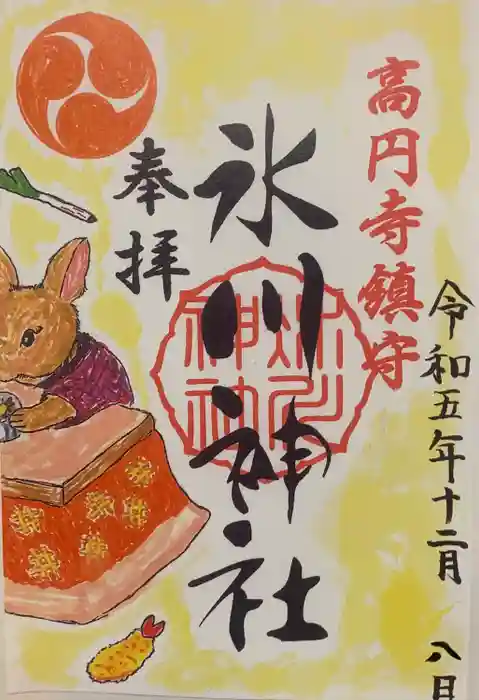 高円寺鎮守
令和五年十二月 八日
氷川神社
奉拝